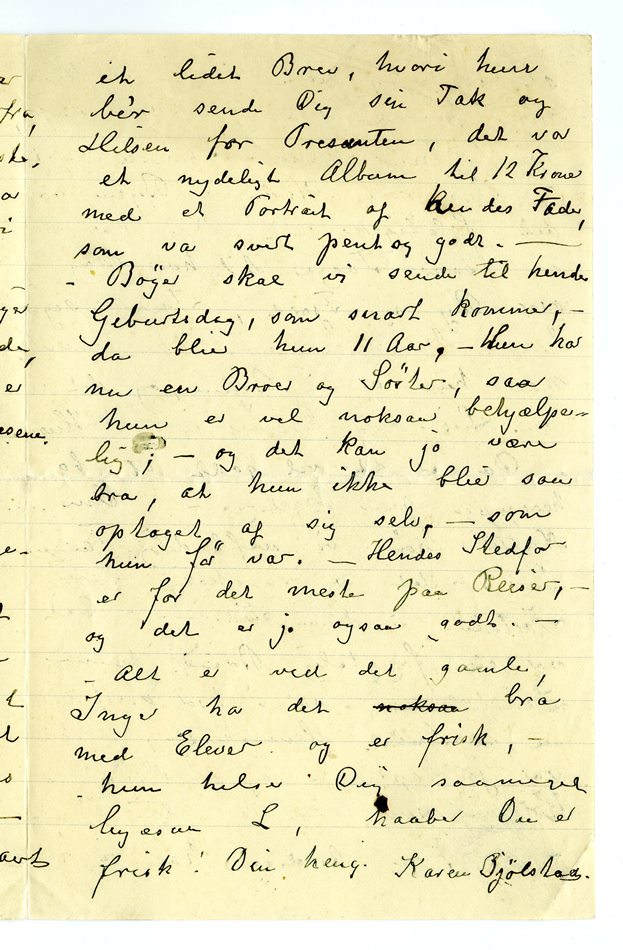 et lidet Brev, hvori hun
bér sende Dig sin Tak og
Hilsen for Presenten, det va
et nydeligt Album til 12 Krone
med et Portræt af hendes Fade,
som va svert pent og godt. —
- Bøger skal vi sende til hende
Geburtsdag, som snart komme, -
da blir hun 11 Aar, - Hun har
nu en Broer og Söster, saa
hun er vel noksaa behjælpe-
lig; - og det kan jo være
bra, at hun ikke blir saa
optaget af sig selv, - som
hun før var. - Hendes Stedfar
er for det meste paa Reiser, -
og det er jo ogsaa godt. -
- Alt er ved det gamle,
Inger ha det noksaa bra
med Elever og er frisk, -
hun helse Dig saameget
ligesaa L, haaber Du er
frisk! Din heng. Karen Bjölstad.
ar
fra,
ske,
a
i
yr
de,
er
esene.
e-
t
-
t
t
s
-
art